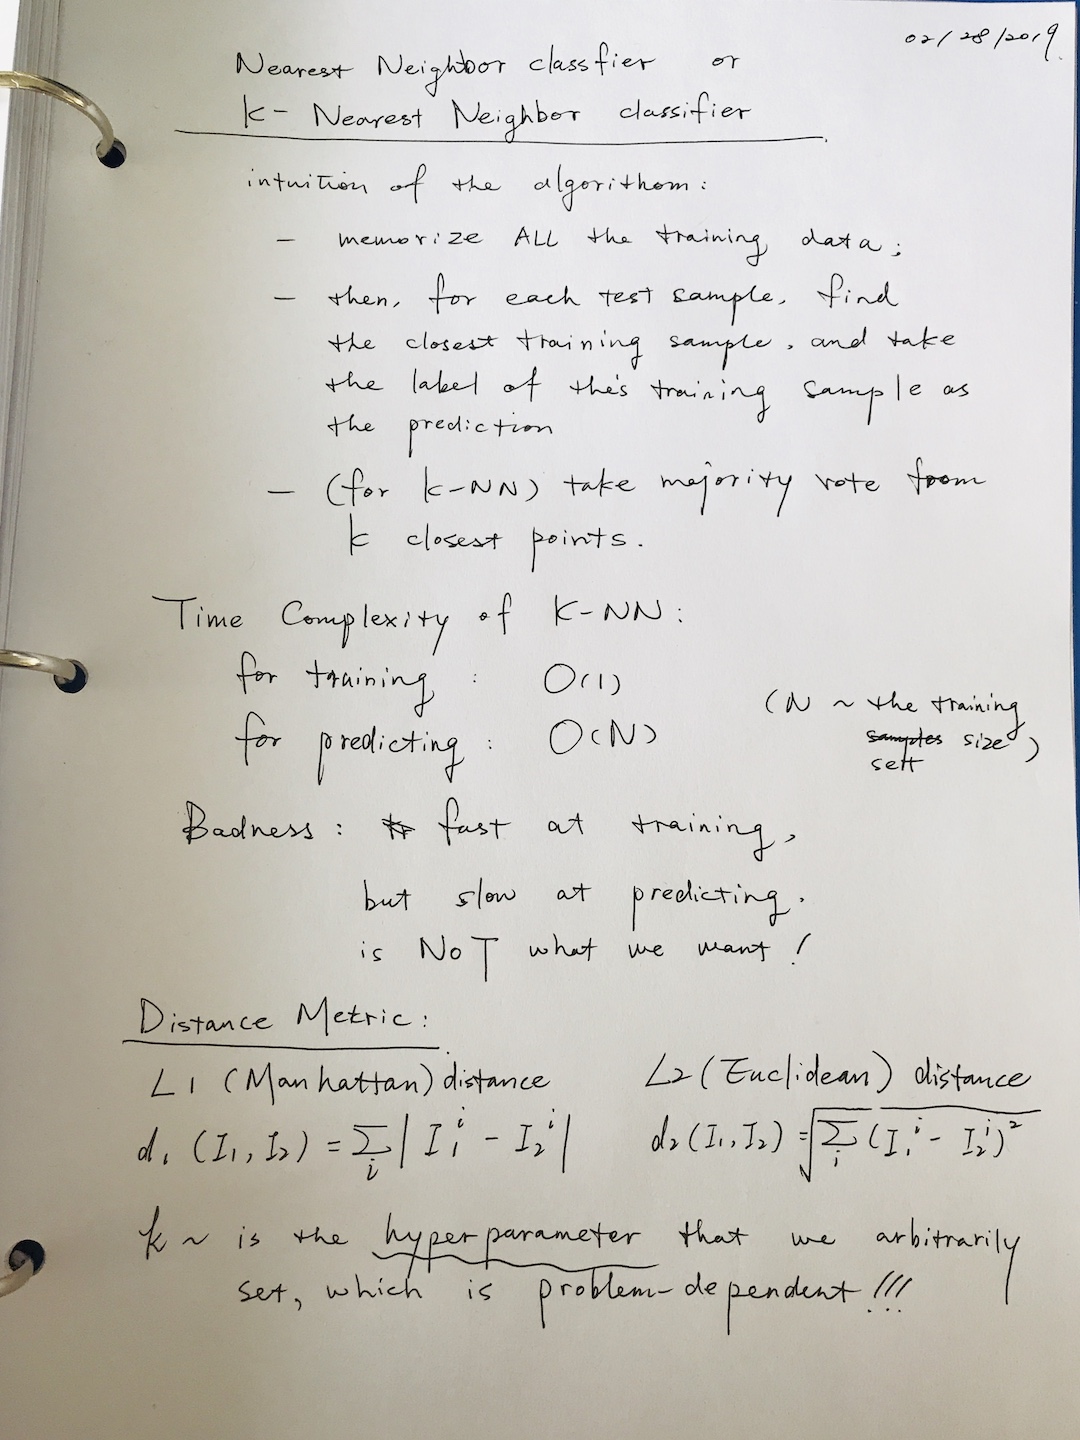 02/28/2019
Nearest Neighbor classfier or
k- Nearest Neighbor classifier
intuition of the algorithom:
- memorize ALL the training data;
- then, for each test sample, find
the closest training sample, and take
the label of this training sample as
the prediction
- (for k-NN) take majority vote from
k closest points.
Time Complexity of K-NN:
for training : O(1)
for predicting : O(N)
(N ~ the training
samples size)
sett
Badness: fast at training,
but slow at predicting.
is NOT what we want!
Distance Metric:
L1 (Manhattan) distance
d₁ (I₁, I₂) = ∑ᵢ | I₁ⁱ - I₂ⁱ |
L2 (Euclidean) distance
d₂ (I₁, I₂) = √∑ᵢ (I₁ⁱ - I₂ⁱ)²
k ~ is the hyperparameter that we arbitrarily
set, which is problem-dependent!!!